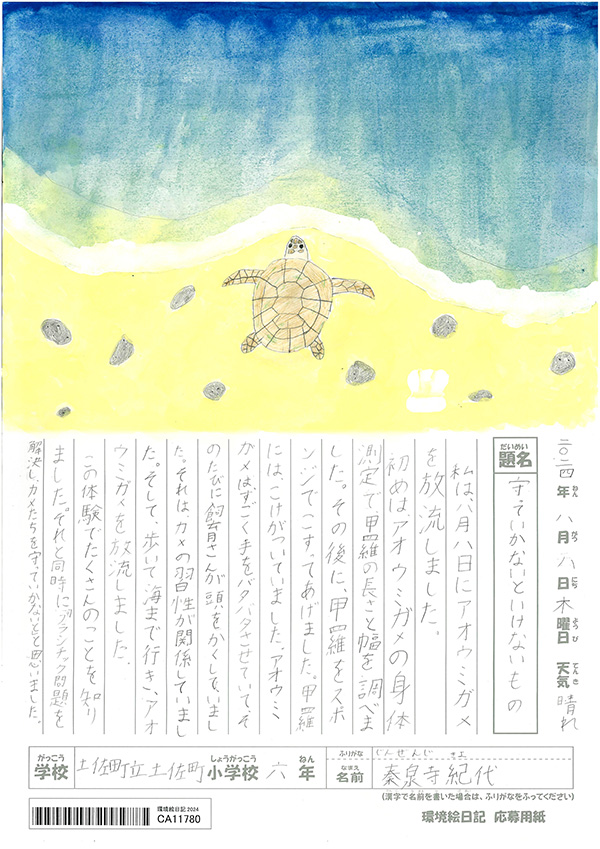 二〇二四年八月八日木曜日 天気 晴れ
ねん がつ にち ようび てんき
だいめい
題名 守っていかないといけないもの
私は、八月八日にアオウミガメ
を放流しました。
初めは、アオウミガメの身体
測定で、甲羅の長さと幅を調べま
した。その後に、甲羅をスポ
ンジでこすってあげました。甲羅
には、こけがついていました。アオウミ
ガメは、すごく手をバタバタさせていて、そ
のたびに飼育さんが頭をかくしていまし
た。それは、カメの習性が関係していまし
た。そして、歩いて海まで行き、アオ
ウミガメを放流しました。
この体験でたくさんのことを知り
ました。それと同時に、プランチック問題を
解決し、カメたちを守っていかないとと思いました。
がっこう しょうがっこう ねん
学校 土佐町立土佐町小学校 六年
ふりがな じんぜんじ
なまえ
名前 秦泉寺紀代
(漢字で名前を書いた場合は、ふりがなをふってください)
環境絵日記 2024
CA11780
環境絵日記 応募用紙